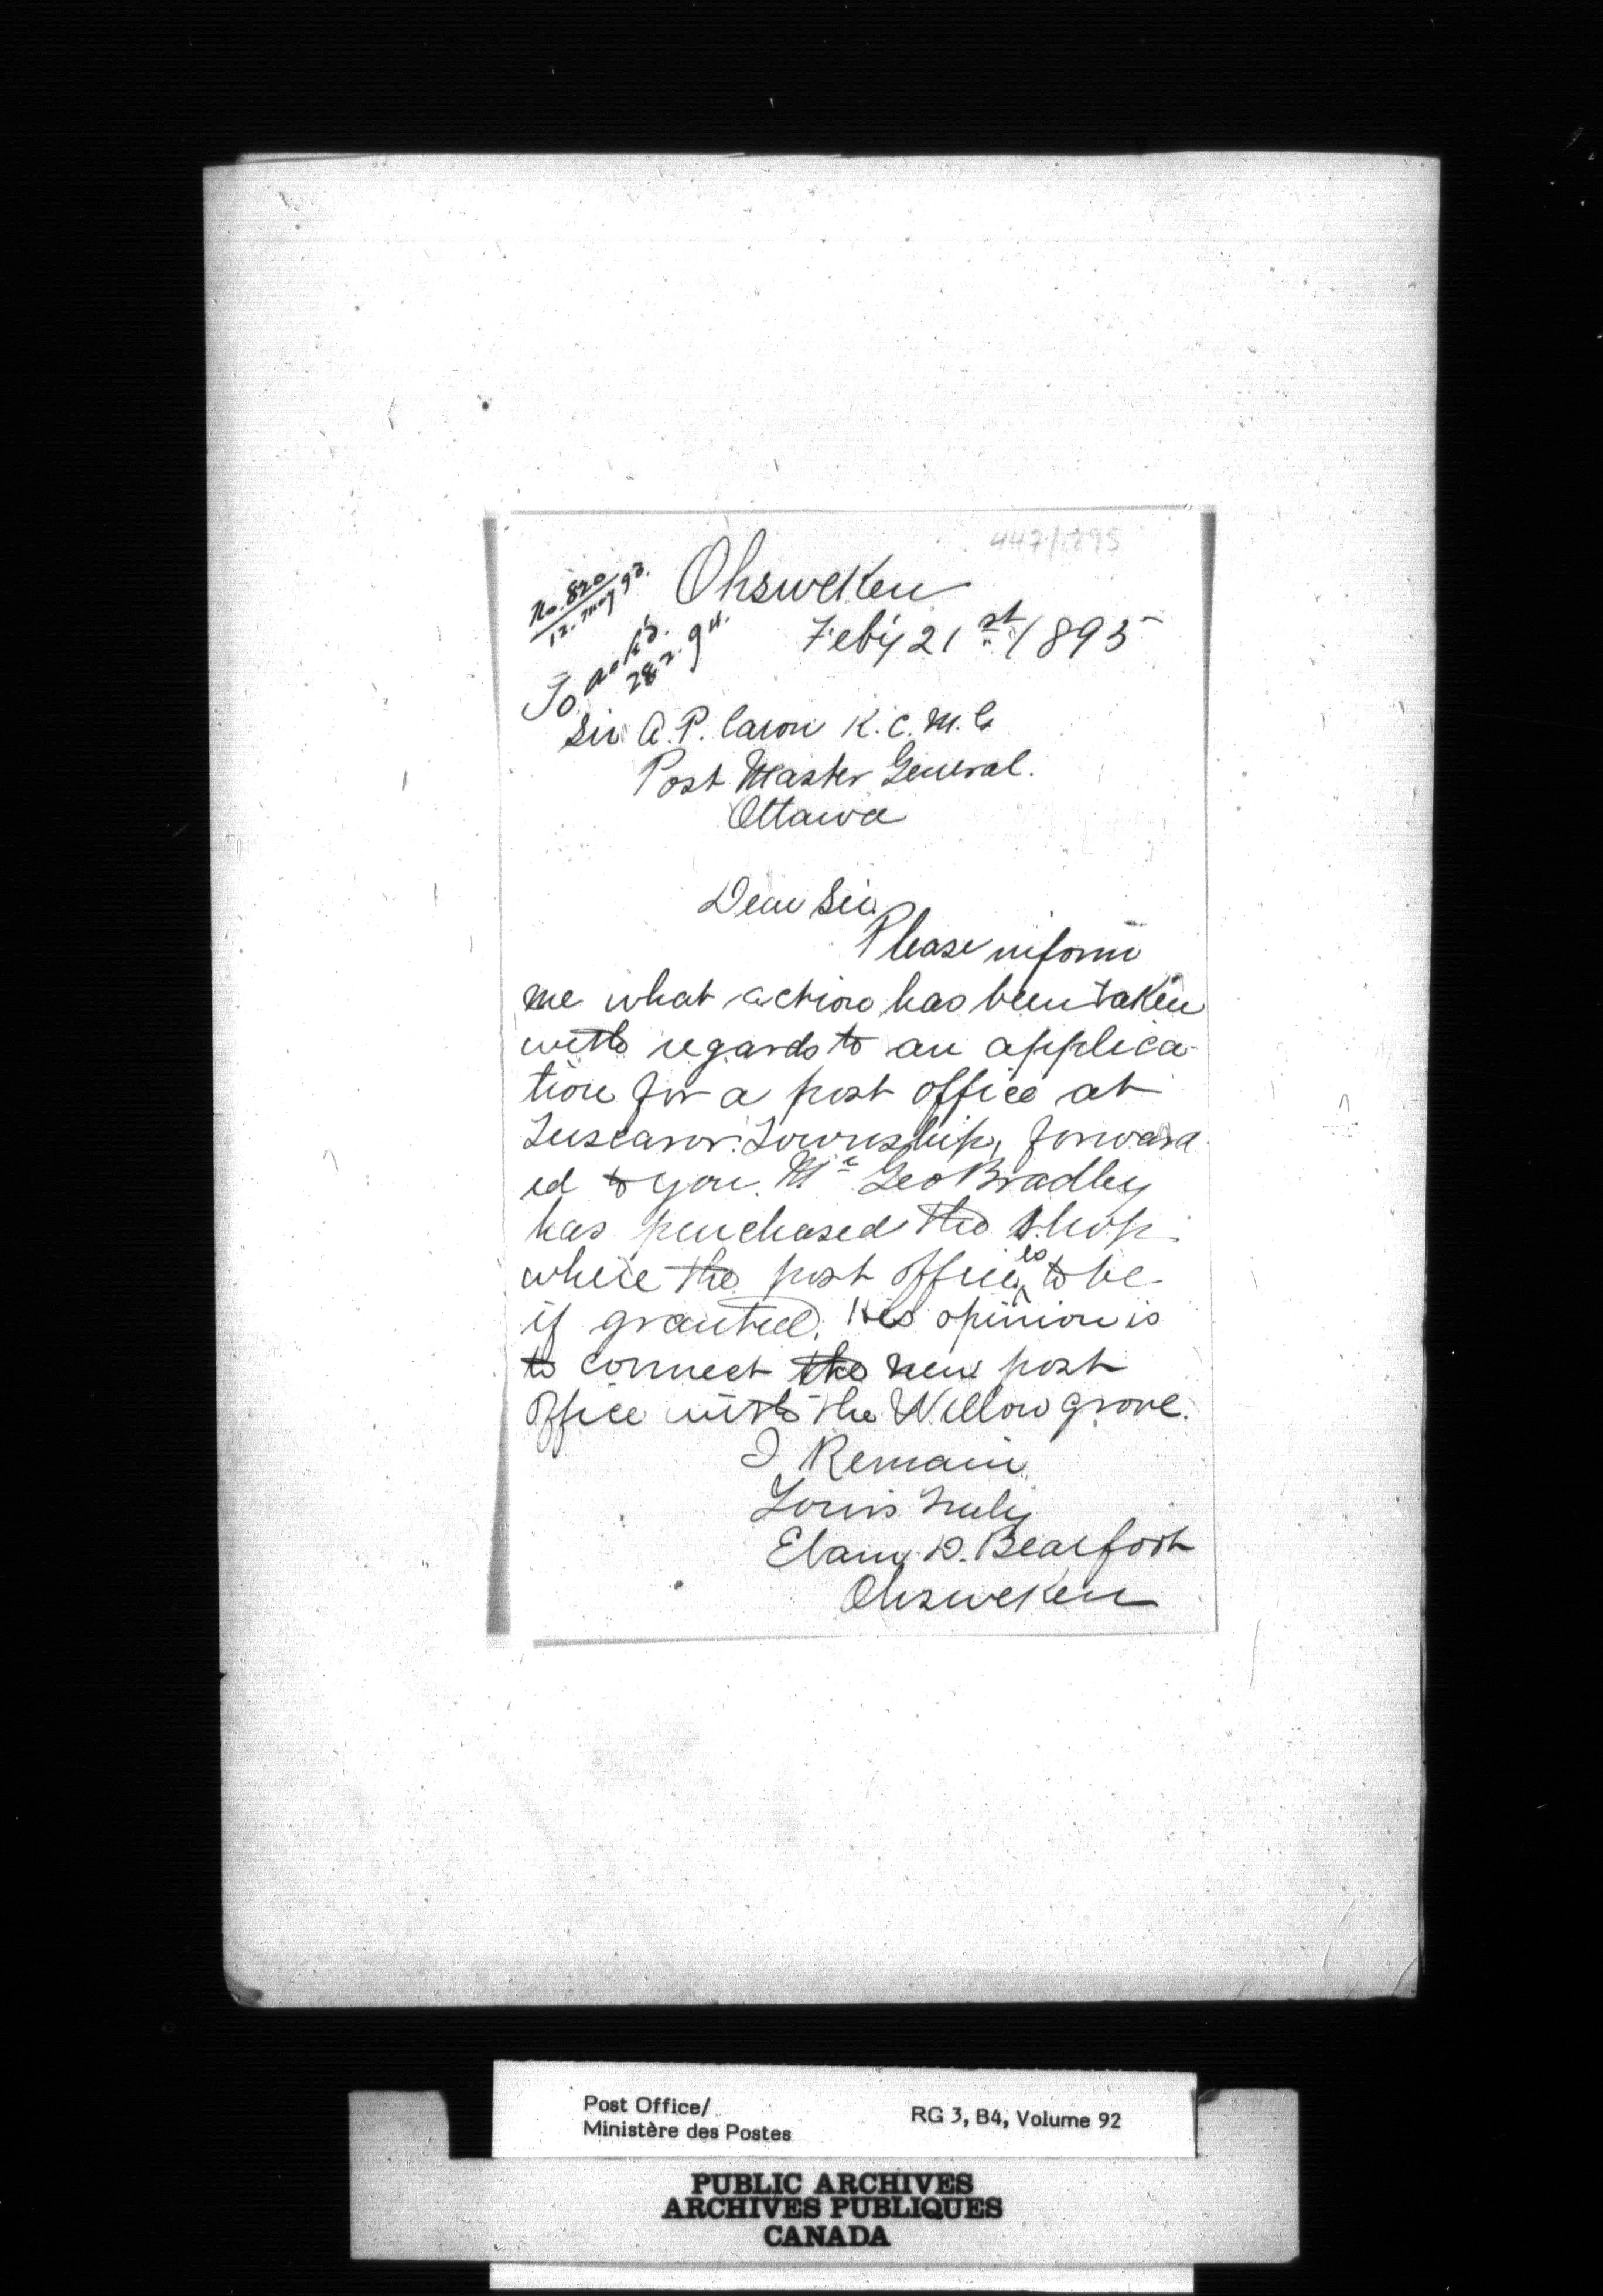 447/1895
No. 820
12. May 93.
Ohsweken
Feb'y 21st 1895
ackd.
28.2.94.
To
Sir A. P. Caron K. C. M. G
Post Master General.
Ottawa
Dear Sir
Please inform
me what action has been taken
with regards to an applica-
tion for a post office at
Tuscaror. Township, forward
ed to you. Mr Geo Bradley
has purchased the shop
where the post office is to be
if granted. His opinion is
to connect the new post
office with the Willow grove.
I Remain
Yours Truly
Elam D. Bearfoot
Ohsweken
Post Office/
Ministère des Postes
RG 3, B4, Volume 92
PUBLIC ARCHIVES
ARCHIVES PUBLIQUES
CANADA